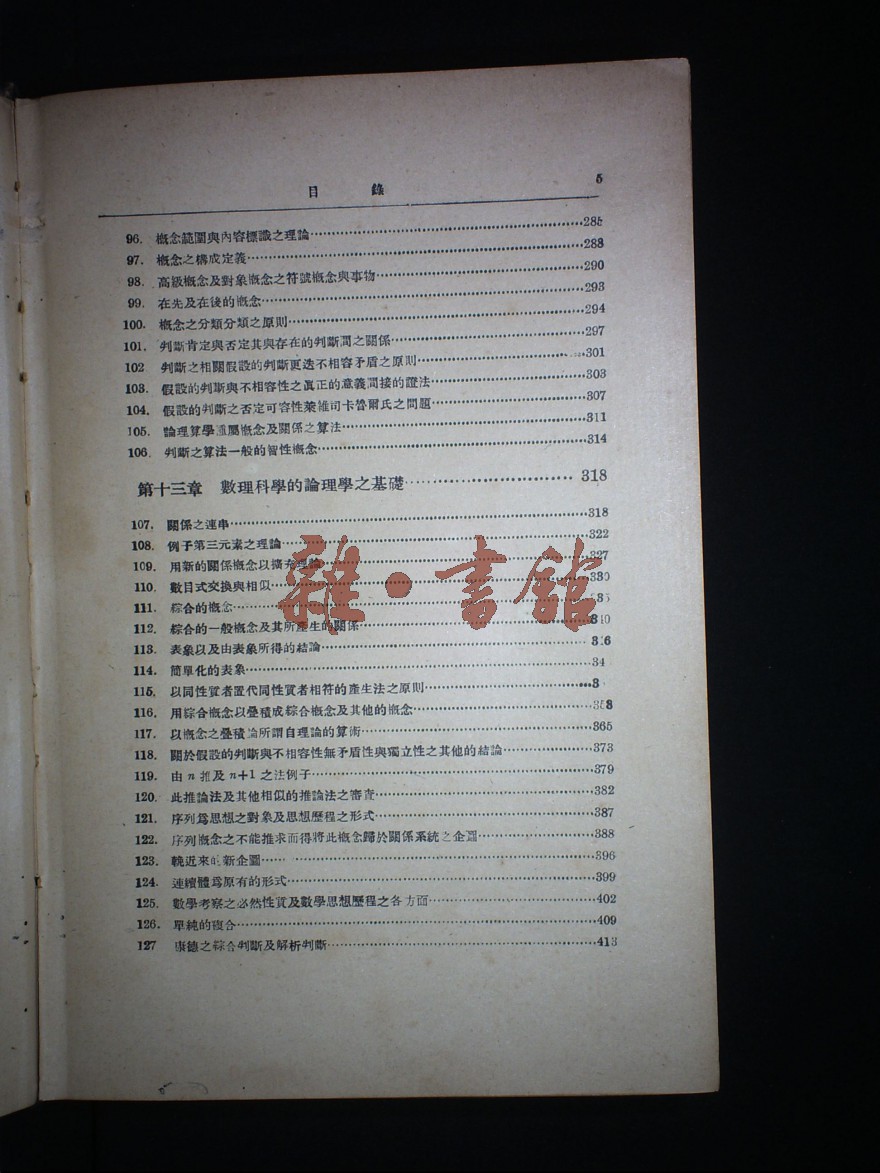 目 錄 5
96. 概念範圍與內容標識之理論 285
97. 概念之構成定義 288
98. 高級概念及對象概念之符號概念與事物 290
99. 在先及在後的概念 293
100. 概念之分類分類之原則 294
101. 判斷肯定與否定其與存在的判斷間之關係 297
102 判斷之相關假設的判斷更迭不相容矛盾之原則 301
103. 假設的判斷與不相容性之眞正的意義間接的證法 303
104. 假設的判斷之否定可容性萊維司卡魯爾氏之問題 307
105. 論理算學進屬概念及關係之算法 311
106. 判斷之算法一般的智性概念 314
第十三章 數理科學的論理學之基礎 318
107. 關係之連串 318
108. 例子第三元素之理論 322
109. 用新的關係概念以擴充理論 327
110. 數目式交換與相似 330
111. 綜合的概念
112. 綜合的一般概念及其所產生的關係 340
113. 表象以及由表象所得的結論
114. 簡單化的表象
115. 以同性質者置代同性質者相符的產生法之原則
116. 用綜合概念以疊積成綜合概念及其他的概念 358
117. 以概念之疊積論所謂自理論的算術 365
118. 關於假設的判斷與不相容性無矛盾性與獨立性之其他的結論 373
119. 由 n 推及 n+1 之法例子 379
120. 此推論法及其他相似的推論法之審查 382
121. 序列爲思想之對象及思想歷程之形式 387
122. 序列概念之不能推求而得將此概念歸於關係系統之企圖 388
123. 輓近來的新企圖 396
124. 連續體爲原有的形式 399
125. 數學考察之必然性質及數學思想歷程之各方面 402
126. 單純的複合 409
127 康德之綜合判斷及解析判斷 413
雜·書館